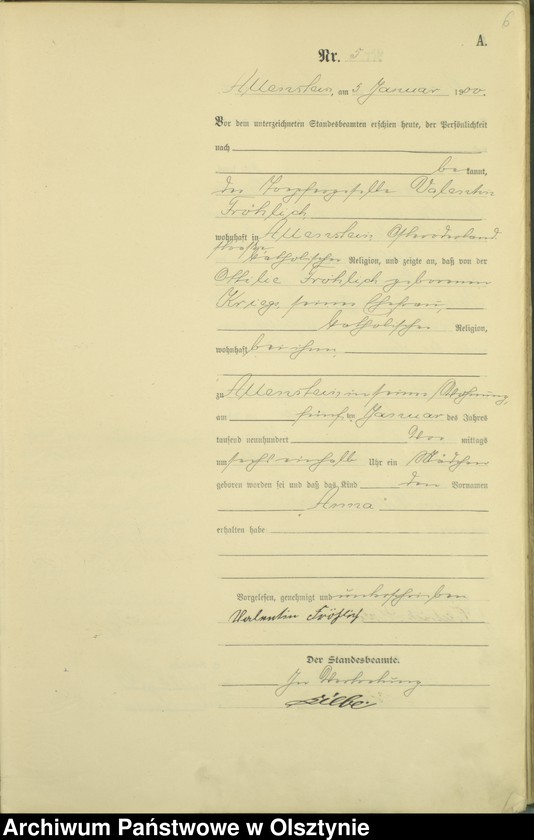 6
A.
Nr. 5
Allenstein, am 5 Januar 1900.
Vor dem unterzeichneten Standesbeamten erschien heute, der Persönlichkeit
nach
bekannt,
der Töpfergeselle Valentin
Fröhlich
wohnhaft in Allenstein Osteroderland
straße
katholischer Religion, und zeigte an, daß von der
Ottilie Fröhlich geborenen
Krieg, seiner Ehefrau,
katholischer Religion,
wohnhaft bei ihm
zu Allenstein in seiner Wohnung,
am Januar des Jahres
tausend neunhundert Vor mittags
um sechs einhalb Uhr ein Mädchen
geboren worden sei und daß das Kind den Vornamen
Anna
erhalten habe
Vorgelesen, genehmigt und unterschrieben
Valentin Fröhlich
Der Standesbeamte.
In Vertretung
Archiwum Państwowe w Olsztynie